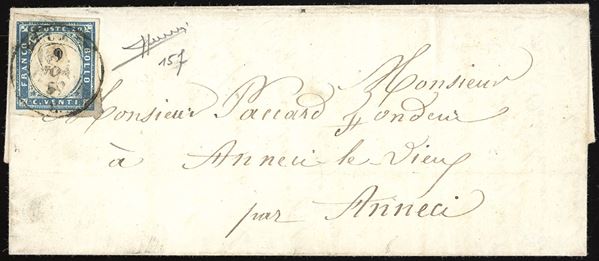 C. POSTE 20
FRANCO
BOLLO
C. VENTI
9
NOV
59
157
Monsieur
Monsieur Paccard fondeur
à Anneci le Vieux
par Anneci